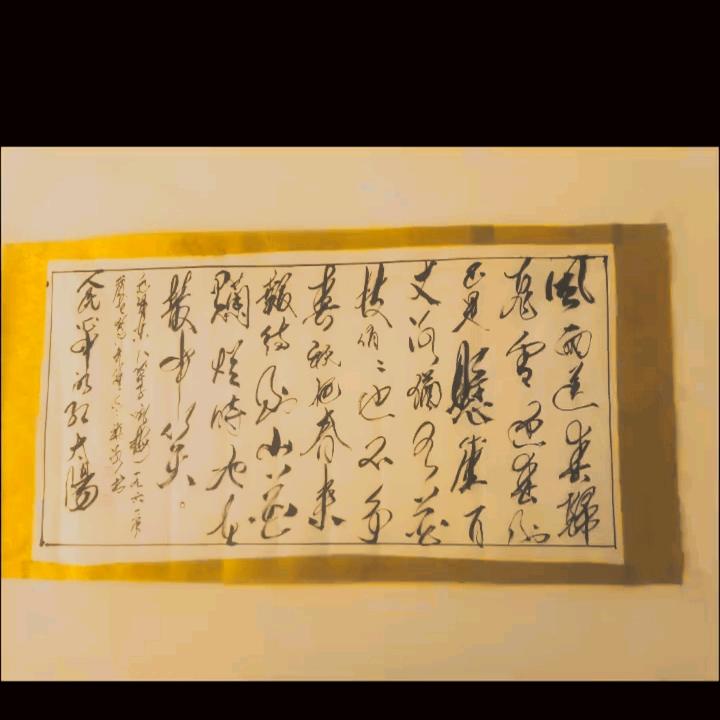 風雨送春歸
飛雪迎春到
已是懸崖百
丈冰猶有花
枝俏々也不爭
春祇把春來
報待到山花
爛熳時她在
叢中笑。
毛澤東 詠梅 一九六一年
人民軍 紅太陽